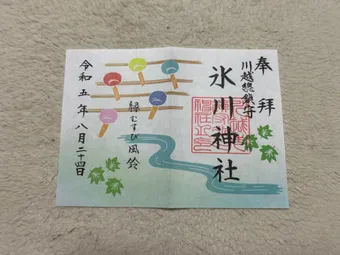 奉拝
川越総鎮守
氷川神社
縁むすび風鈴
令和五年八月二十四日